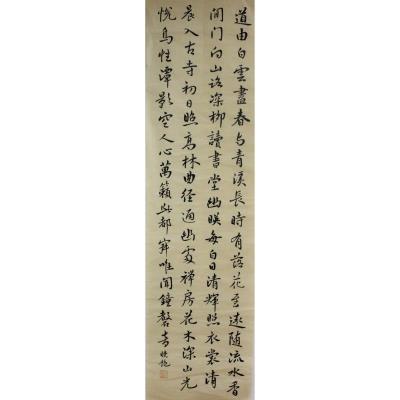 道由白雲盡春与青溪長時有落花至遠随流水香
闲門向山路深柳讀書堂幽映每白日清輝照衣裳清
晨入古寺初日照高林曲径通幽處禅房花木深山光
悦鳥性潭影空人心萬籟此都寂唯聞鐘磬音